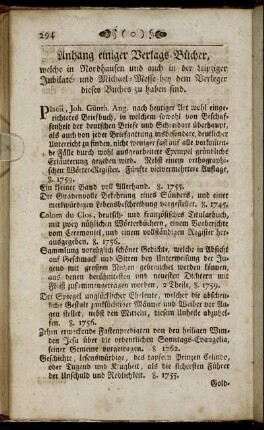 294 ❧ ( o ) ❧
Anhang einiger Verlags-Bücher,
welche in Nordhausen und auch in der Leipziger
Jubilate- und Michael-Messe bey dem Verleger
dieses Buches zu haben sind.
Joh. Günth. Aug. nach heutiger Art wohl einge-
richtetes Briefbuch, in welchem sowohl von Beschaf-
fenheit der deutschen Briefe und Schreibart überhaupt,
als auch von jeder Briefgattung insbesondere, deutlicher
Unterricht zu finden, nicht weniger fast auf alle vorfallen-
de Fälle durch wohl ausgearbeitete Exempel gründliche
Erläuterung gegeben wird. Nebst einem orthographi-
schen Wörter-Register. Fünfte vielvermehrtere Auflage,
8. 1759.
Ein kleiner Band voll Allerhand. 8. 1755.
Der Gnadenberufung eines Sünders, und einer
merkwürdigen Lebensbeschreibung vorgestellet. 8. 1745.
Colom du Clos, deutsch- und französisches Titularbuch,
mit zwey nützlichen Wörterbüchern, einem Vorberichte
vom Ceremoniel, und ein vollständigen Register her-
ausgegeben. 8. 1756.
Sammlung vorzüglich schöner Gedichte, welche in Absicht
auf Geschmack und Sitten bey Unterweisung der Ju-
gend mit grossem Nutzen gebrauchet werden können,
aus den berühmtesten und neuesten Dichtern mit
Fleiß zusammengetragen worden, 2 Theile. 8. 1759.
Der Spiegel unglücklicher Ehleute, welcher die abscheu-
liche Gestalt zanksüchtiger Männer und Weiber vor Au-
gen stellet, nebst den Mitteln, diesem Unheile abzuhel-
fen. 8. 1756.
Zehen erweckende Fastenpredigten von den heiligen Wun-
den Jesu über die ordentlichen Sonntags-Evangelia,
seiner Gemeine vorgetragen. 8. 1762.
Geschichte, lesenswürdige, des tapfern Prinzen Celindo,
oder Tugend und Klugheit, als die sichersten Führer
der Unschuld und Redlichkeit. 8. 1755.
Gold-